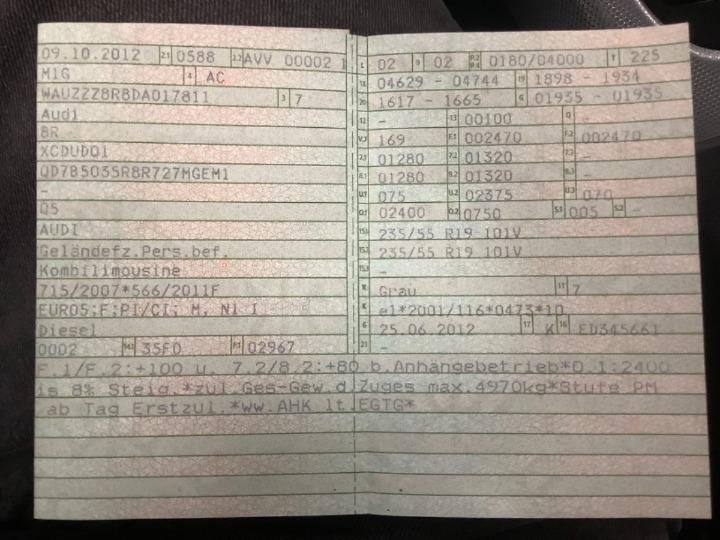 09.10.2012 2.1 0588 2.2 AVV 00002 1
M1G 4 AC
WAUZZZ8R8DA017811 3 7
Audi
8R
XCDUD01
QD7B5035R8R727MGEM1
-
Q5
AUDI
Geländefz.Pers.bef.
Kombilimousine
715/2007*566/2011F
EURO5;F;PI/CI; M, N1 I
Diesel
0002 14.1 35F0 P.1 02967
L 02 9 02 P.2 P.4 0180/04000 T 225
18 04629 - 04744 19 1898 - 1934
20 1617 - 1665 G 01935 - 01935
12 - 13 00100 Q -
V.7 169 F.1 002470 F.2 002470
7.1 01280 7.2 01320 7.3 -
8.1 01280 8.2 01320 8.3 -
U.1 075 U.2 02375 U.3 070
O.1 02400 O.2 0750 S.1 005 S.2 -
15.1 235/55 R19 101V
15.2 235/55 R19 101V
15.3 -
R Grau 11 7
K e1*2001/116*0473*10
6 25.06.2012 17 K 16 ED345661
21 -
F.1/F.2:+100 u. 7.2/8.2:+80 b.Anhängebetrieb*O.1:2400
is 8% Steig.*zul.Ges-Gew.d.Zuges max.4970kg*Stufe PM
ab Tag Erstzul.*ww.AHK lt.EGTG*